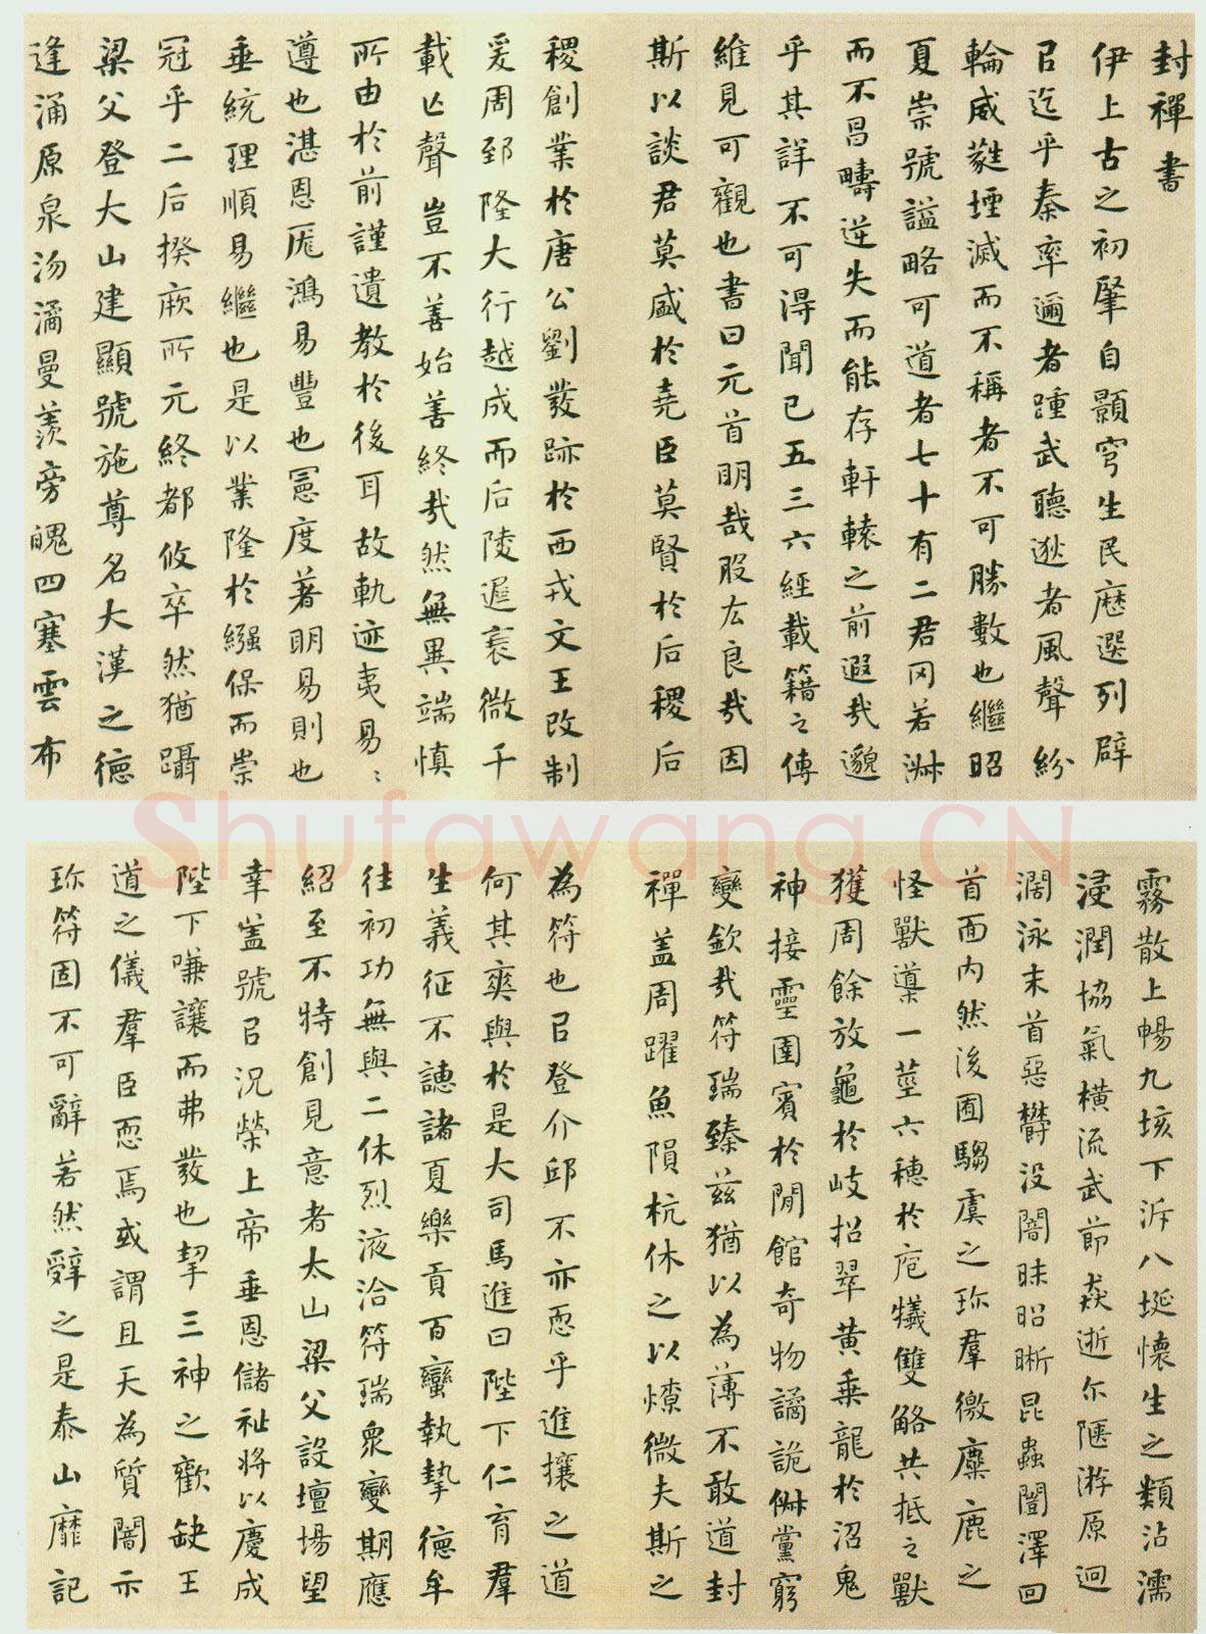 封禪書
伊上古之初肇自顥穹生民歷選列辟
㠯迄乎秦率邇者踵武聽逖者風聲紛
輪威蕤堙滅而不稱者不可勝數也繼昭
夏崇號謚略可道者七十有二君罔若淑
而不昌疇逆失而能存軒轅之前遐哉邈
乎其詳不可得聞已五三六經載籍之傳
維見可觀也書曰元首明哉股厷良哉因
斯以談君莫盛於堯臣莫賢於后稷后
稷創業於唐公劉發跡於西戎文王改制
爰周郅隆大行越成而后陵遲衰微千
載亡聲豈不善始善終哉然無異端慎
所由於前謹遺教於後耳故軌迹夷易易
遵也湛恩厖鴻易豐也憲度著明易則也
垂統理順易繼也是以業隆於繈保而崇
冠乎二后揆厥所元終都攸卒然猶躡
梁父登大山建顯號施尊名大漢之德
逢涌原泉沕潏曼羨旁魄四塞雲布
霧散上暢九垓下泝八埏懷生之類沾濡
浸潤協氣橫流武節猋逝尒陿游原迥
濶泳末首惡欝没闇昧昭晰昆蟲闓澤回
首面内然後囿騶虞之珎羣徼麋鹿之
怪獸導一莖六穗於庖犧雙觡共柢之獸
獲周餘放龜於岐招翠黄乗龍於沼鬼
神接靈圉賓於閒館奇物譎詭俶黨窮
變欽哉符瑞臻兹猶以為薄不敢道封
禪盖周躍魚隕杭休之以燎微夫斯之
為符也㠯登介邱不亦恧乎進攘之道
何其爽與於是大司馬進曰陛下仁育羣
生義征不譓諸夏樂貢百蠻執摯德牟
往初功無與二休烈液洽符瑞衆變期應
紹至不特創見意者太山梁父設壇場望
幸盖號㠯况榮上帝垂恩儲祉將以慶成
陛下嗛讓而弗發也挈三神之歡缺王
道之儀羣臣恧焉或謂且天為質闇示
珎符固不可辭若然辤之是泰山靡記
Shufawang.CN